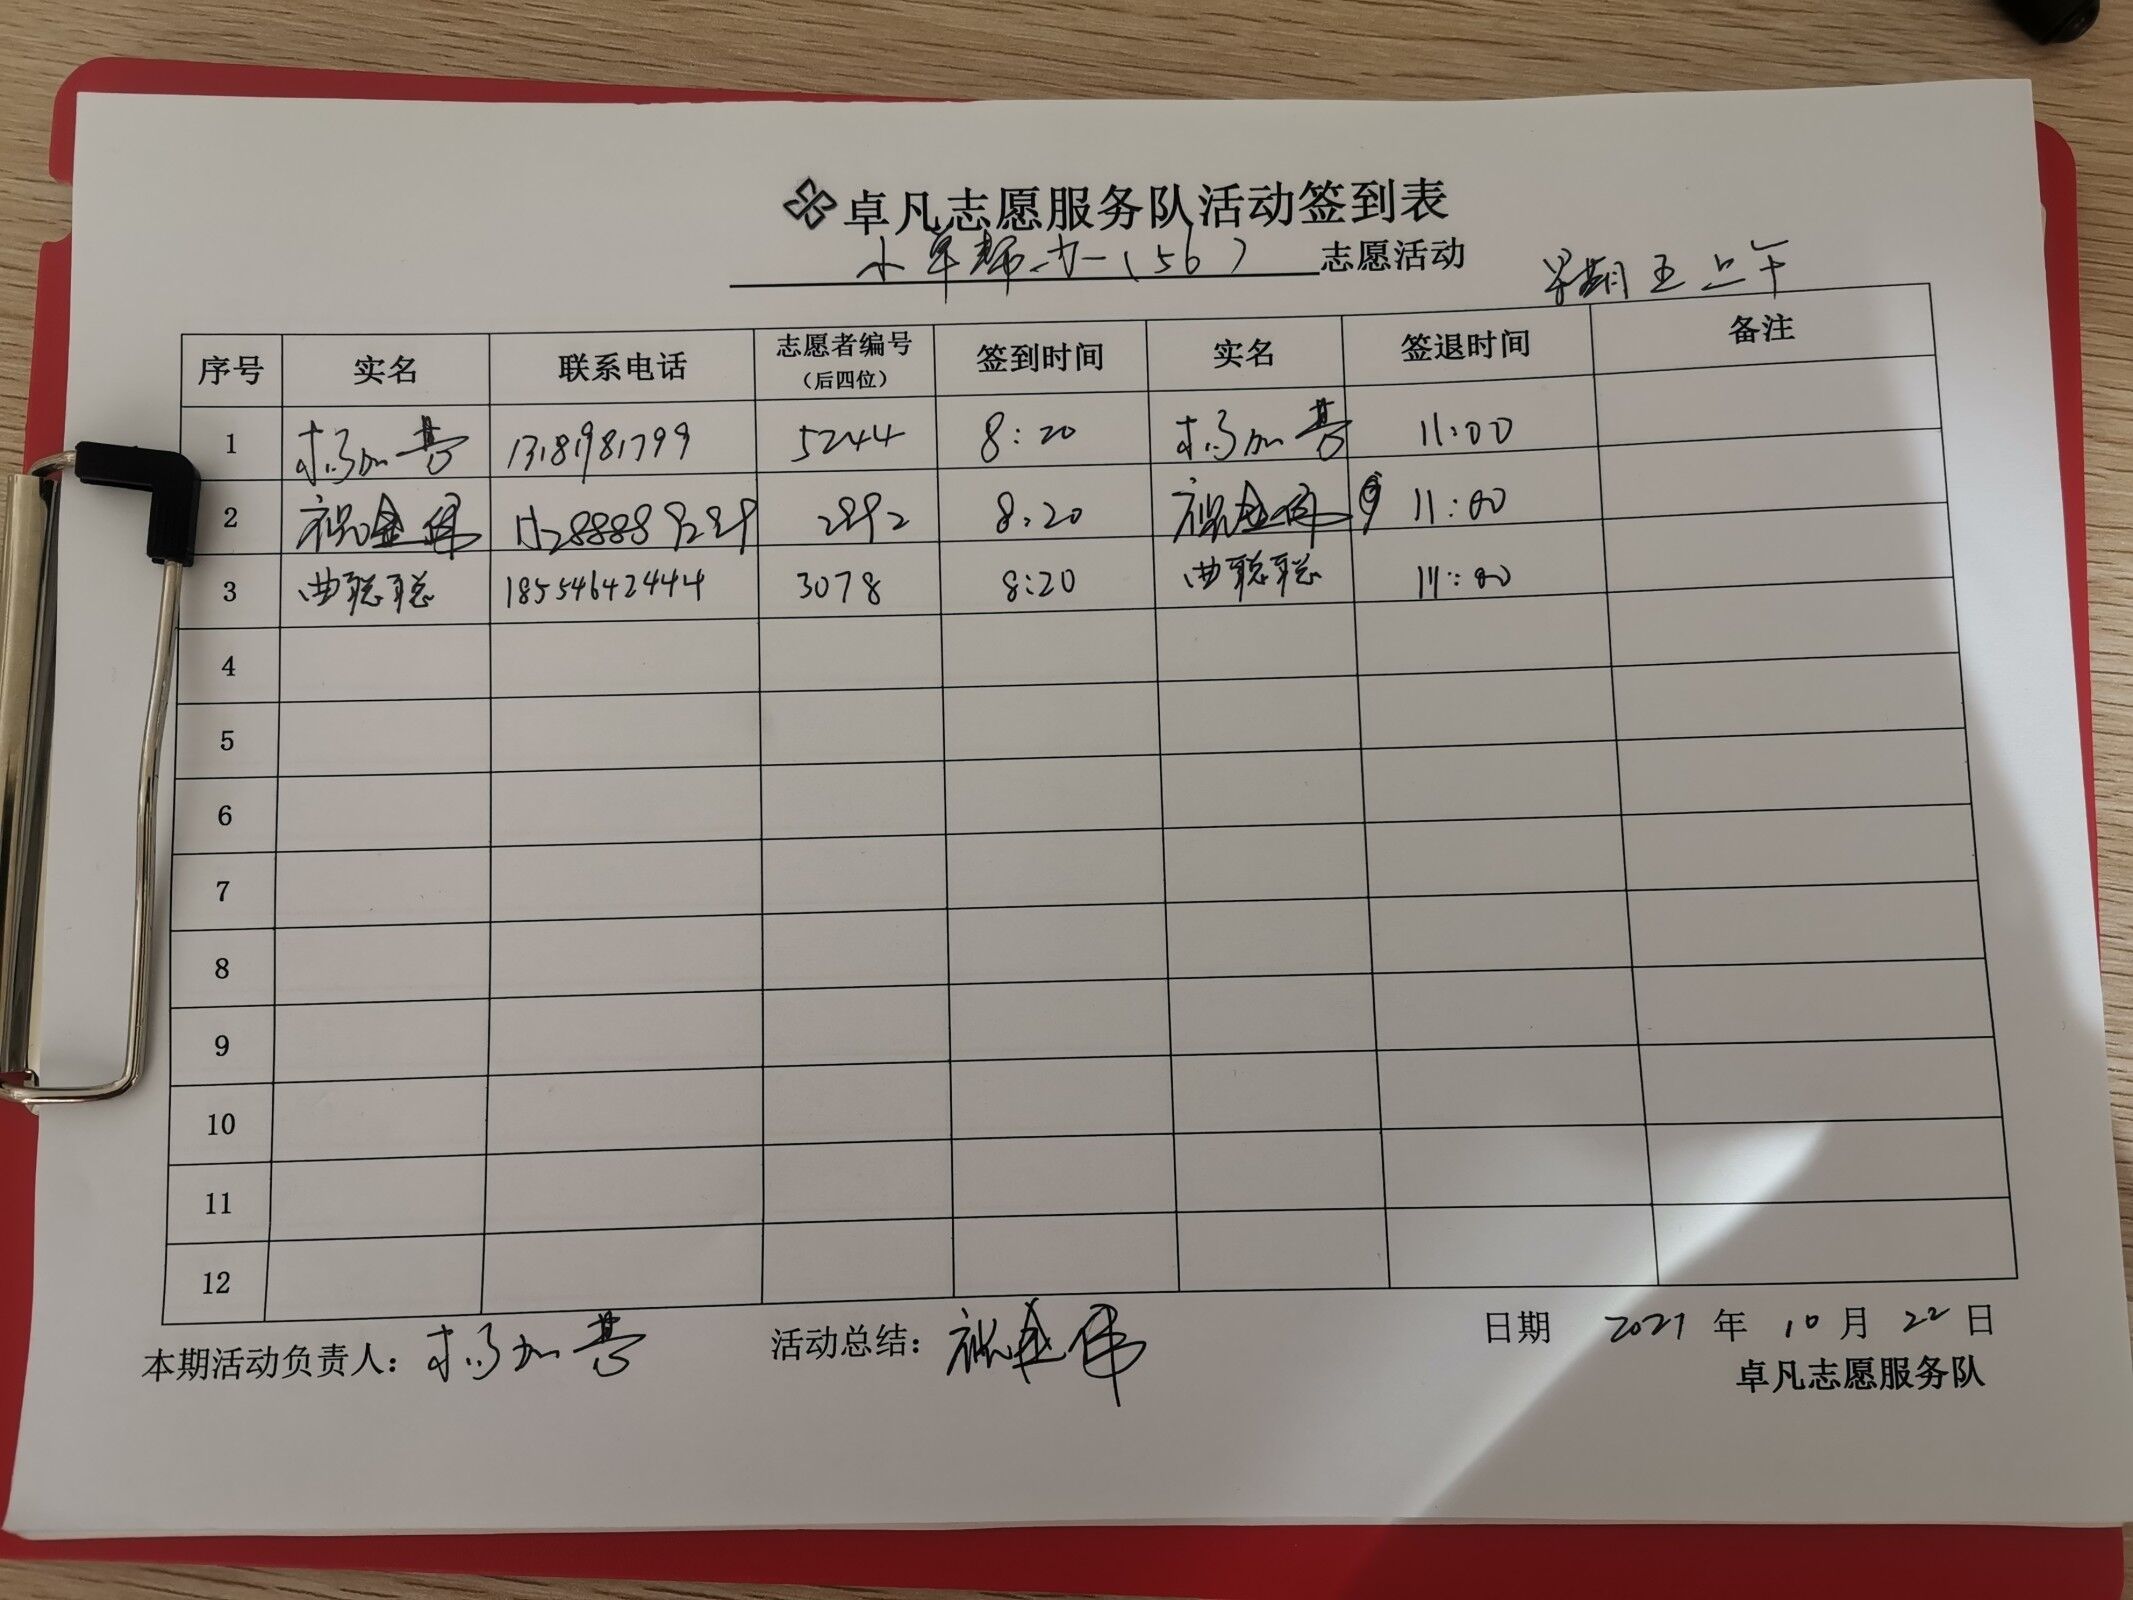 卓凡志愿服务队活动签到表
(56) 志愿活动
星期五上午
序号 实名 联系电话 志愿者编号 (后四位) 签到时间 实名 签退时间 备注
1 杨加善 13181981799 5244 8:20 杨加善 11:00
2 祝金伟 2892 8:20 祝金伟 11:00
3 曲聪聪 18554642444 3078 8:20 曲聪聪 11:00
4
5
6
7
8
9
10
11
12
本期活动负责人: 杨加善 活动总结: 祝金伟 日期 2021 年 10 月 22 日
卓凡志愿服务队